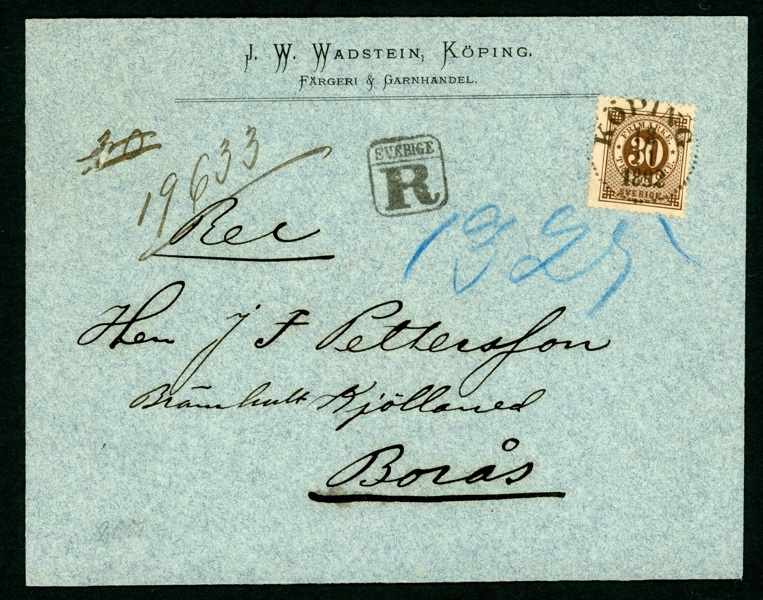 J. W. WADSTEIN, KÖPING.
FÄRGERI & GARNHANDEL.
KÖPING
FRIMÄRKE
30
1892
SVERIGE
30
19633
SVERIGE
R
Rec
1325
Herr J F Pettersson
Brämhult Kjöllared
Borås